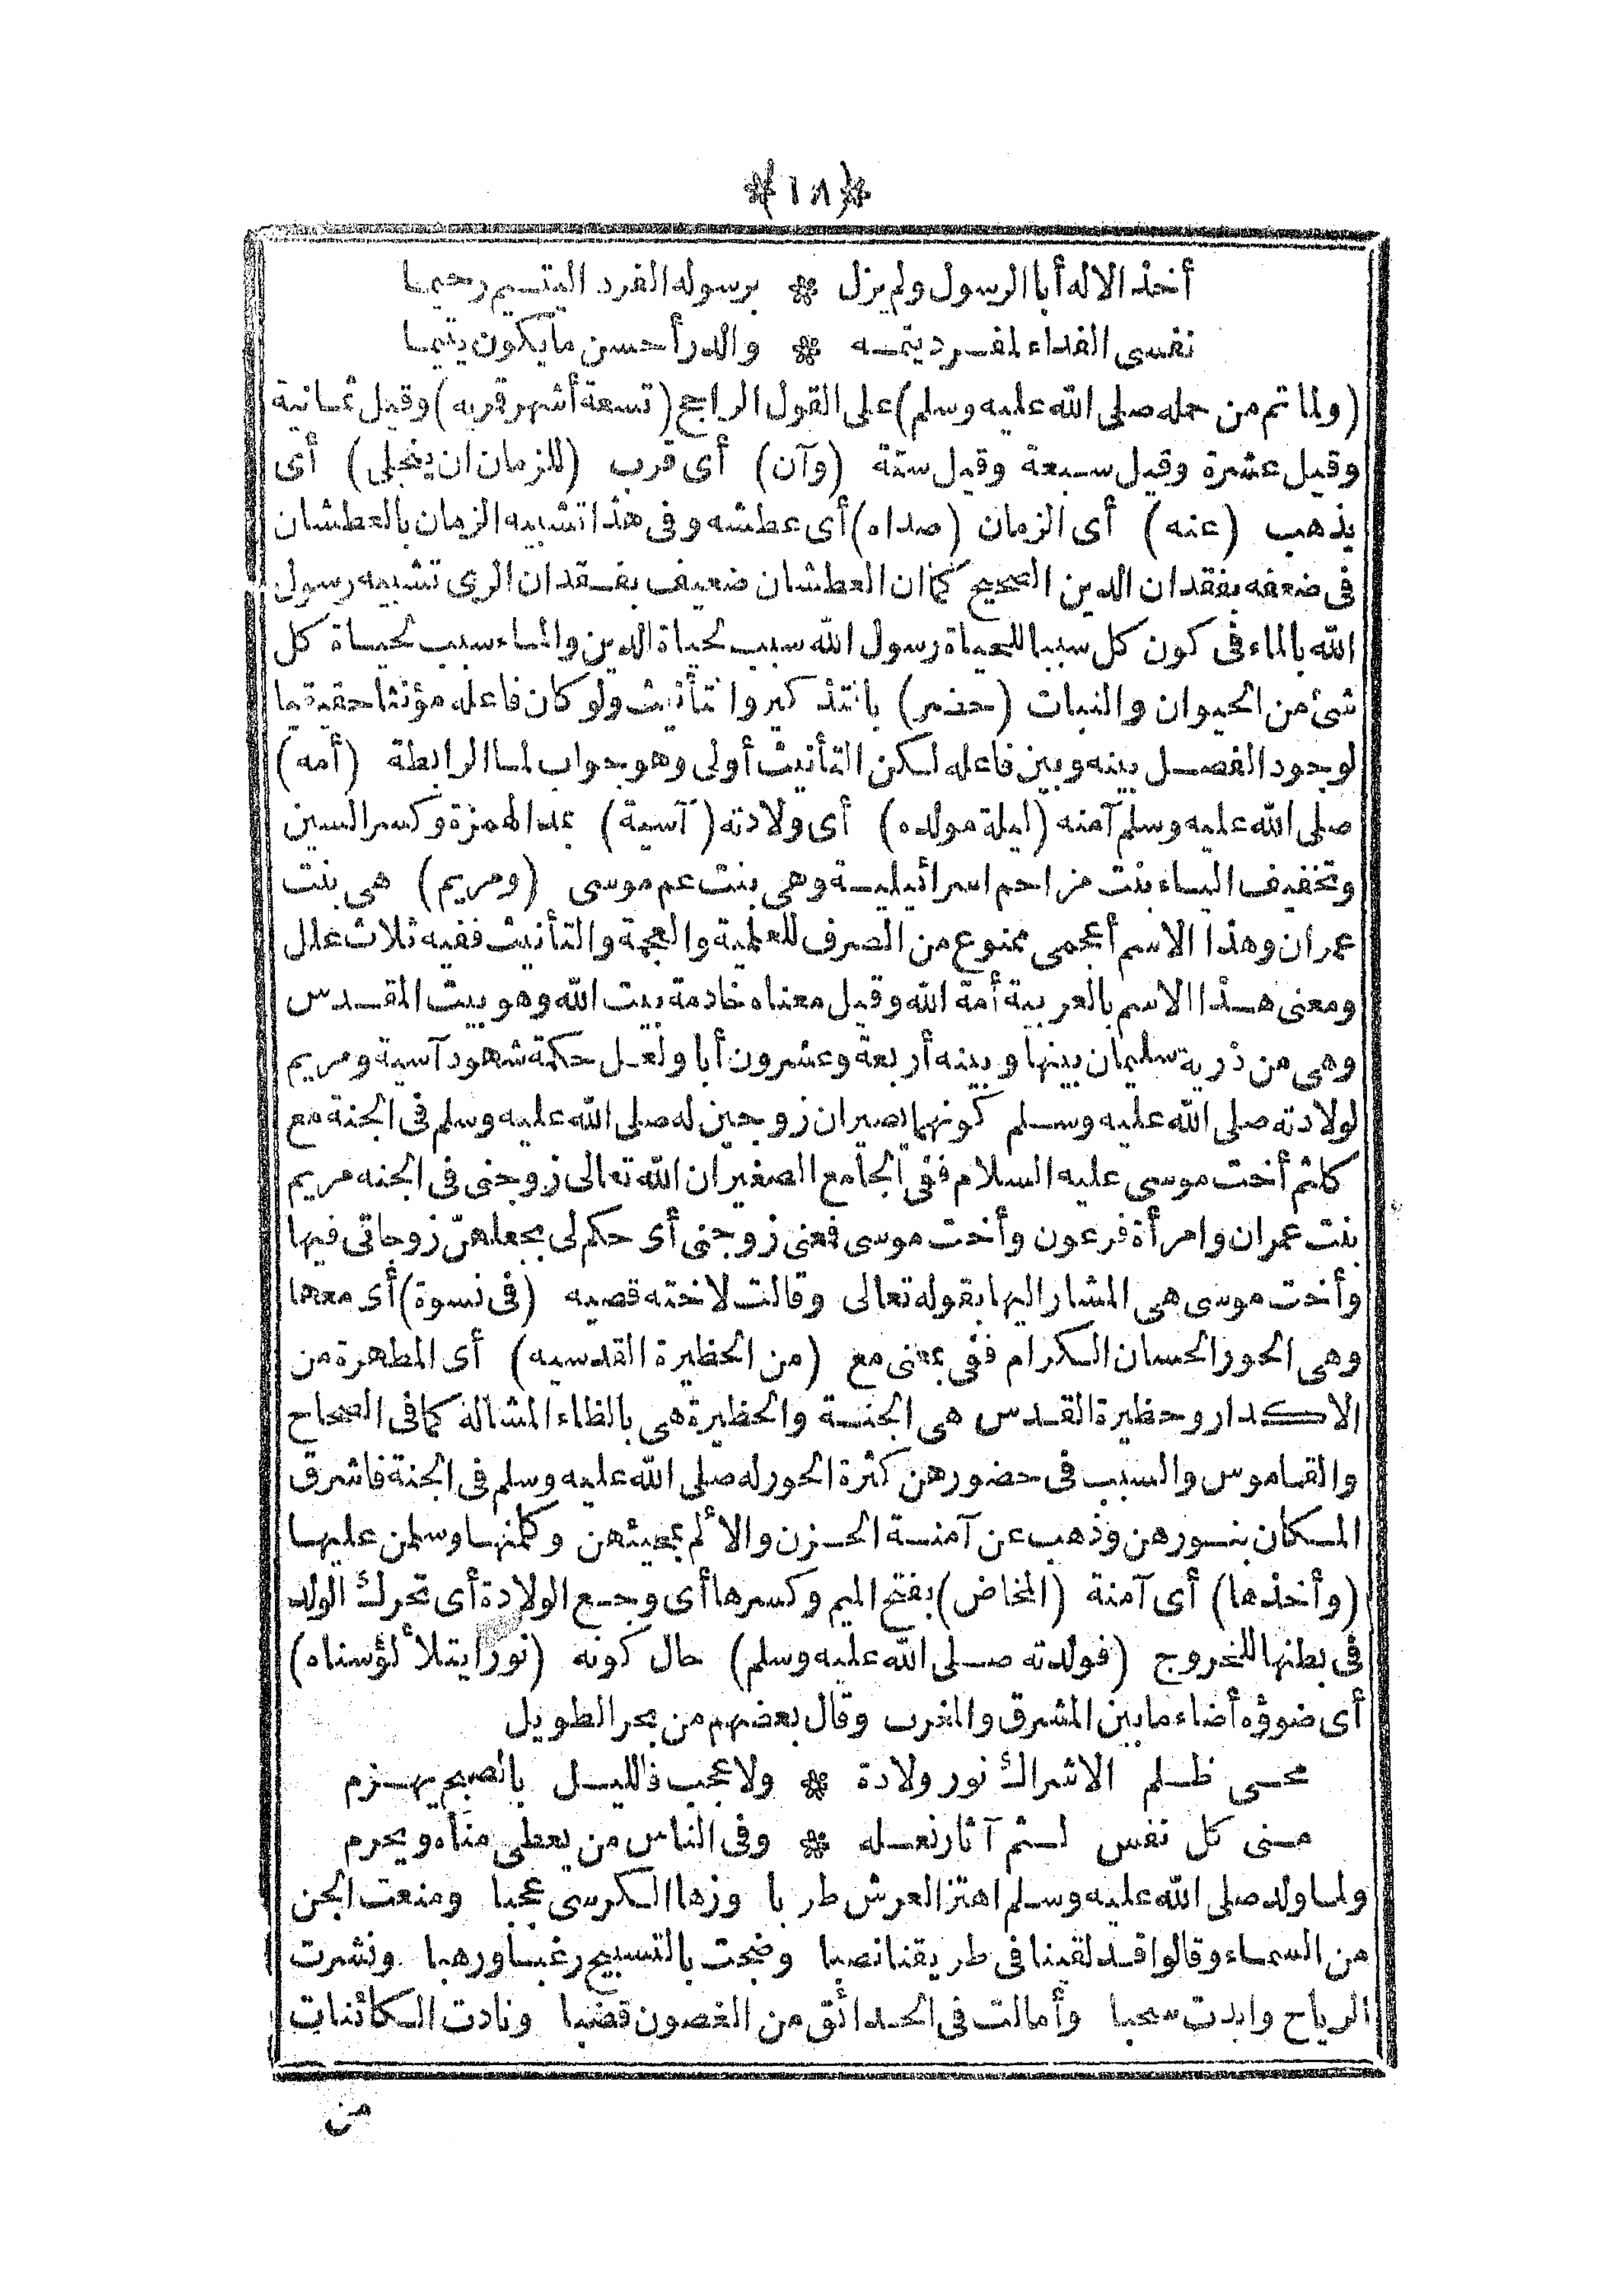 ﴿١٨﴾
أخذ الاله أبا الرسول ولم يزل * برسوله الفرد اليتيم رحيما
نفسى الفداء لمفرد يتمه * والدر أحسن ما يكون يتيما
(ولما تم من حمله صلى الله عليه وسلم) على القول الراجح (تسعة أشهر قريه) وقيل ثمانية
وقيل عشرة وقيل سبعة وقيل ستة (وآن) أى قرب (للزمان ان ينجلى) أى
يذهب (عنه) أى الزمان (صداه) أى عطشه وفى هذا تشبيه الزمان بالعطشان
فى ضعفه بفقدان الدين الصحيح كما ان العطشان ضعيف بفقدان الرى تشبيه رسول
الله بالماء فى كون كل سببا للحياة رسول الله سبب لحياة الدين والماء سبب لحياة كل
شئ من الحيوان والنبات (حضر) بالتذكير والتأنيث ولو كان فاعله مؤنثا حقيقيا
لوجود الفصل بينه وبين فاعله لكن التأنيث أولى وهو جواب لما الرابطة (أمه)
صلى الله عليه وسلم آمنه (ليلة مولده) أى ولادته (آسية) بمد الهمزة وكسر السين
وتخفيف الياء بنت مزاحم اسرائيلية وهى بنت عم موسى (ومريم) هى بنت
عمران وهذا الاسم أعجمى ممنوع من الصرف للعلمية والعجمة والتأنيث ففيه ثلاث علل
ومعنى هذا الاسم بالعربية أمة الله وقيل معناه خادمة بيت الله وهو بيت المقدس
وهى من ذرية سليمان بينها وبينه أربعة وعشرون أبا ولعل حكمة شهود آسية ومريم
لولادته صلى الله عليه وسلم كونهما يصيران زوجين له صلى الله عليه وسلم فى الجنة مع
كلثم أخت موسى عليه السلام ففى الجامع الصغير ان الله تعالى زوجنى فى الجنه مريم
بنت عمران وامرأة فرعون وأخت موسى فمعنى زوجنى أى حكم لى بجعلهنّ زوجاتى فيها
وأخت موسى هى المشار اليها بقوله تعالى وقالت لاخته قصيه (فى نسوة) أى معها
وهى الحور الحسان الكرام ففى بمعنى مع (من الحظيرة القدسيه) أى المطهرة من
الاكدار وحظيرة القدس هى الجنة والحظيرة هى بالظاء المشالة كما فى الصحاح
والقاموس والسبب فى حضورهن كثرة الحور له صلى الله عليه وسلم فى الجنة فاشرق
المكان بنورهن وذهب عن آمنة الحزن والألم بمعيتهن وكلمنها وسلمن عليها
(وأخذها) أى آمنة (المخاض) بفتح الميم وكسرها أى وجع الولادة أى تحرك الولد
فى بطنها للخروج (فولدته صلى الله عليه وسلم) حال كونه (نورا يتلألؤسناه)
أى ضوؤه أضاء ما بين المشرق والمغرب وقال بعضهم من بحر الطويل
محى ظلم الاشراك نور ولادة * ولا عجب فالليل بالصبح يهزم
منى كل نفس لثم آثار نعله * وفى الناس من يعطى مناه ويحرم
ولما ولد صلى الله عليه وسلم اهتز العرش طربا وزها الكرسى عجبا ومنعت الجن
من السماء وقالوا قد لقينا فى طريقنا نصبا وضجت بالتسبيح رغبا ورهبا ونشرت
الرياح وابدت سحبا وأمالت فى الحدائق من الغصون قضبا ونادت الكائنات
من